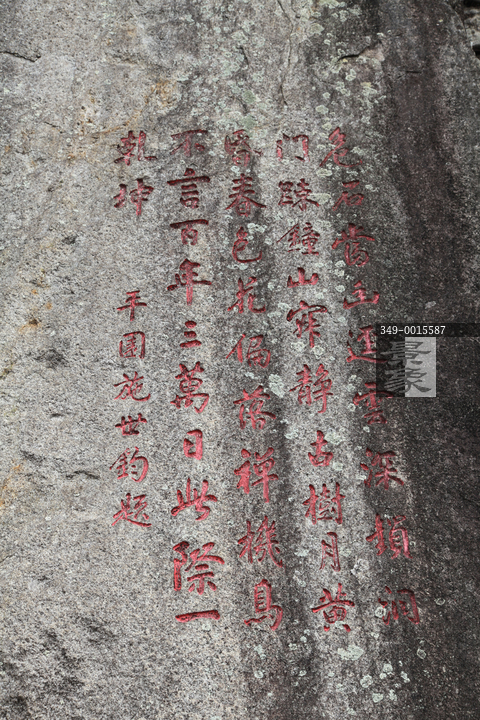 危石當幽逕雲深洞
門疎鐘山寂靜古樹月黃
昏春色花偏落禪機鳥
不言百年三萬日此際一
乾坤
平圃施世鈞題
349-0015587